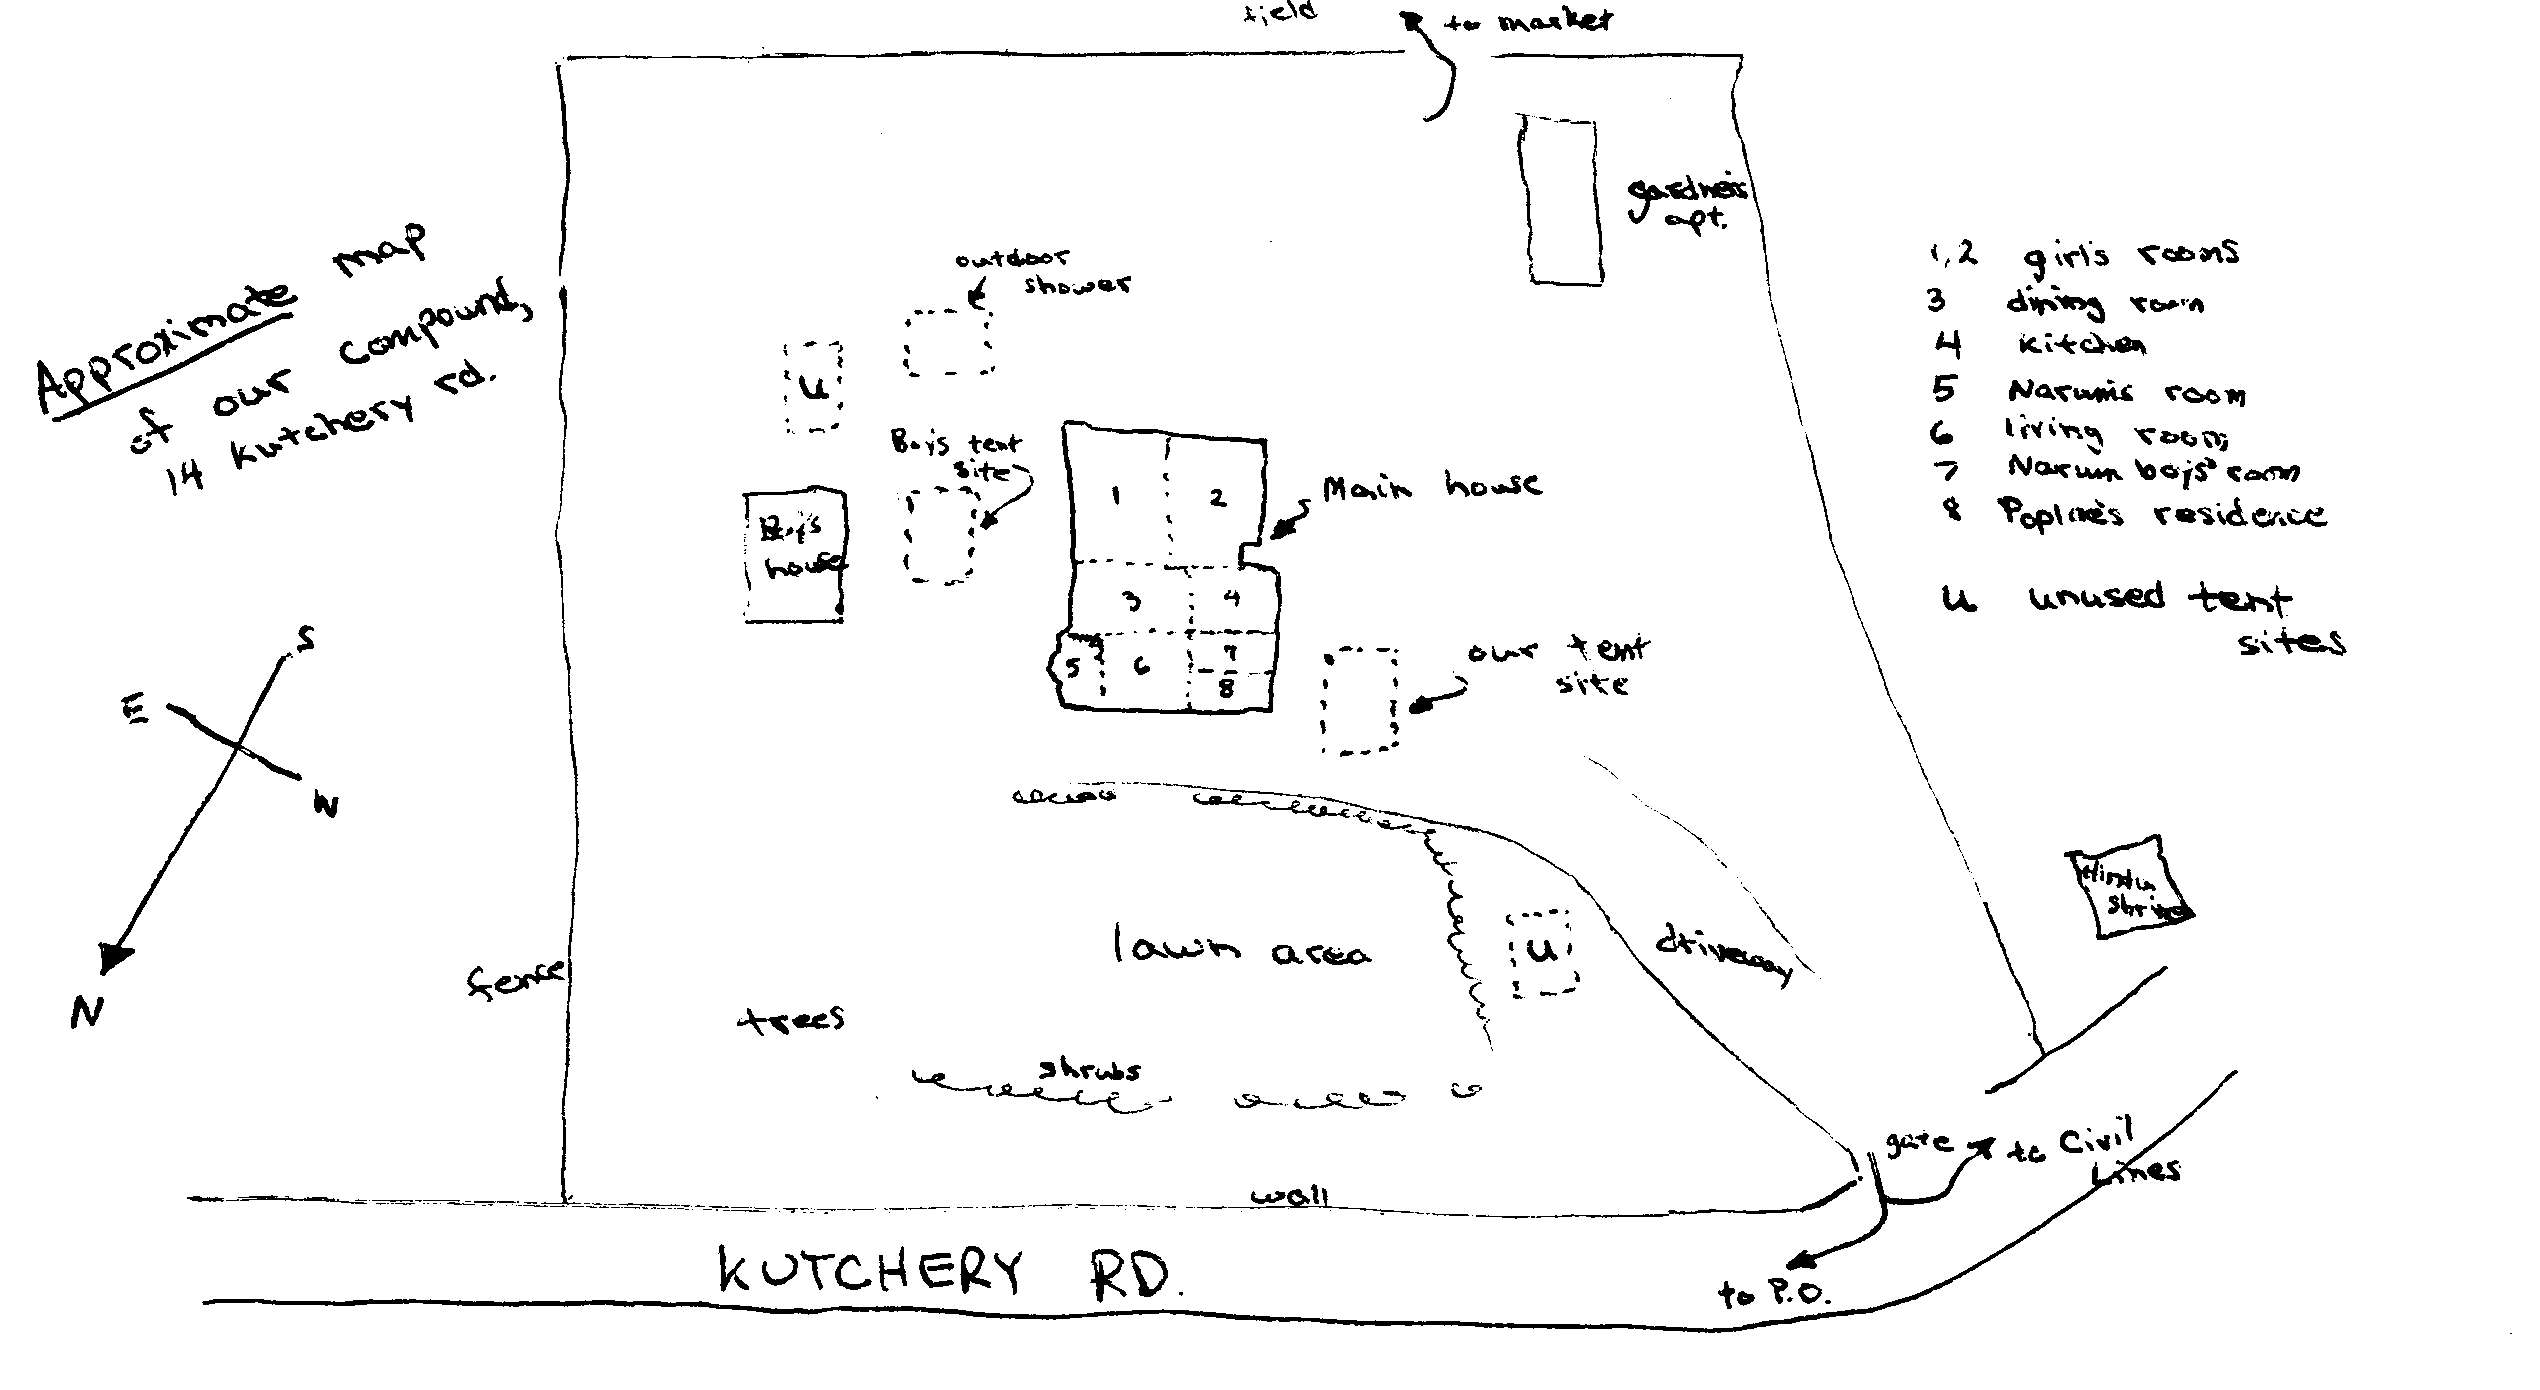 field
to market
Approximate map
of our compound,
14 kutchery rd.
gardner's
apt.
outdoor
shower
u
Boy's tent
site
Boy's
house
Main house
1
2
3
4
5
6
7
8
our tent
site
1,2 girl's rooms
3 dining room
4 kitchen
5 Narum's room
6 living room
7 Narum boys' room
8 residence
u unused tent
sites
S
E
W
N
fence
lawn area
trees
shrubs
u
driveway
Hindu
shrine
gate
to Civil
Lines
wall
KUTCHERY RD.
to P.O.